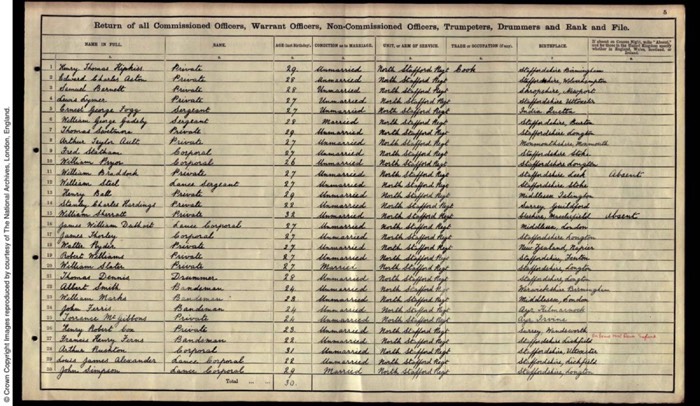 5
Return of all Commissioned Officers, Warrant Officers, Non-Commissioned Officers, Trumpeters, Drummers and Rank and File.
NAME IN FULL. RANK. AGE (last Birthday). CONDITION as to MARRIAGE. UNIT, or ARM OF SERVICE. TRADE or OCCUPATION (if any). BIRTHPLACE.
1 Henry Thomas Private 29 Unmarried North Stafford Regt Cook Staffordshire Birmingham
2 Edward Charles Acton Private 28 Unmarried North Stafford Regt Staffordshire Wolverhampton
3 Samuel Barnett Private 28 Unmarried North Stafford Regt Shropshire, Newport
4 Lewis Private 27 Unmarried North Stafford Regt Staffordshire Uttoxeter
5 Ernest George Fogg Sergeant 27 Unmarried North Stafford Regt India
6 William George Gadsby Sergeant 28 Married North Stafford Regt Staffordshire, Burton
7 Thomas Private 29 Unmarried North Stafford Regt Staffordshire Longton
8 Arthur Taylor Ault Private 27 Unmarried North Stafford Regt Monmouthshire Monmouth
9 Fred Statham Corporal 27 Unmarried North Stafford Regt Staffordshire Stoke
10 William Pryor Corporal 26 Unmarried North Stafford Regt Staffordshire Longton
11 William Braddock Private 27 Unmarried North Stafford Regt Staffordshire Leek Absent
12 William Steel Lance Sergeant 27 Unmarried North Stafford Regt Staffordshire Stoke
13 Henry Ball Private 29 Unmarried North Stafford Regt Middlesex Islington
14 Stanley Charles Hardings Private 22 Unmarried North Stafford Regt Surrey Guildford
15 William Sherratt Private 32 Unmarried North Stafford Regt Macclesfield Absent
16 James William Lance Corporal 27 Unmarried North Stafford Regt Middlesex, London
17 James Thorley Corporal 27 Unmarried North Stafford Regt Staffordshire Longton
18 Walter Ryder Private 27 Unmarried North Stafford Regt New Zealand, Napier
19 Robert Williams Private 27 Unmarried North Stafford Regt Staffordshire, Fenton
20 William Slater Private 27 Married North Stafford Regt Staffordshire, Longton
21 Thomas Dennis Drummer 28 Unmarried North Stafford Regt Staffordshire, Longton
22 Albert Smith Bandsman 24 Unmarried North Stafford Regt Warwickshire Birmingham
23 William Marks Bandsman 23 Unmarried North Stafford Regt Middlesex, London
24 John Ferris Bandsman 24 Unmarried North Stafford Regt Ayr Kilmarnock
25 Torrance McGibbons Private 24 Unmarried North Stafford Regt Ayr Irvine
26 Henry Robert Cox Private 23 Unmarried North Stafford Regt Surrey, Wandsworth
27 Francis Henry Ferns Bandsman 22 Unmarried North Stafford Regt Staffordshire Lichfield
28 Arthur Rushton Corporal 31 Unmarried North Stafford Regt Staffordshire, Uttoxeter
29 Louis James Alexander Lance Corporal 22 Unmarried North Stafford Regt Staffordshire, Lichfield
30 John Simpson Lance Corporal 29 Married North Stafford Regt Staffordshire, Longton
Total ... ... 30
© Crown Copyright Images reproduced by courtesy of The National Archives, London, England.